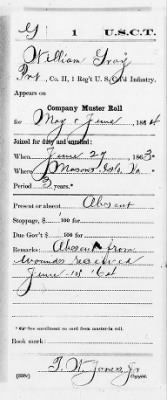 G 1 U.S.C.T.
William Gray
Pvt., Co. H, 1 Reg't U.S. Col'd Infantry.
Appears on
Company Muster Roll
for May & June, 1864
Joined for duty and enrolled:
When June 27, 1863
Where Masons Isl'd, Va
Period 3 years.*
Present or absent Absent
Stoppage, $ 100 for
Due Gov't $ 100 for
Remarks: Absent from
wounds received
June 15 '64
*See enrollment on card from muster-in roll.
Book mark:
T. W. Jones, Jr
Copyist.